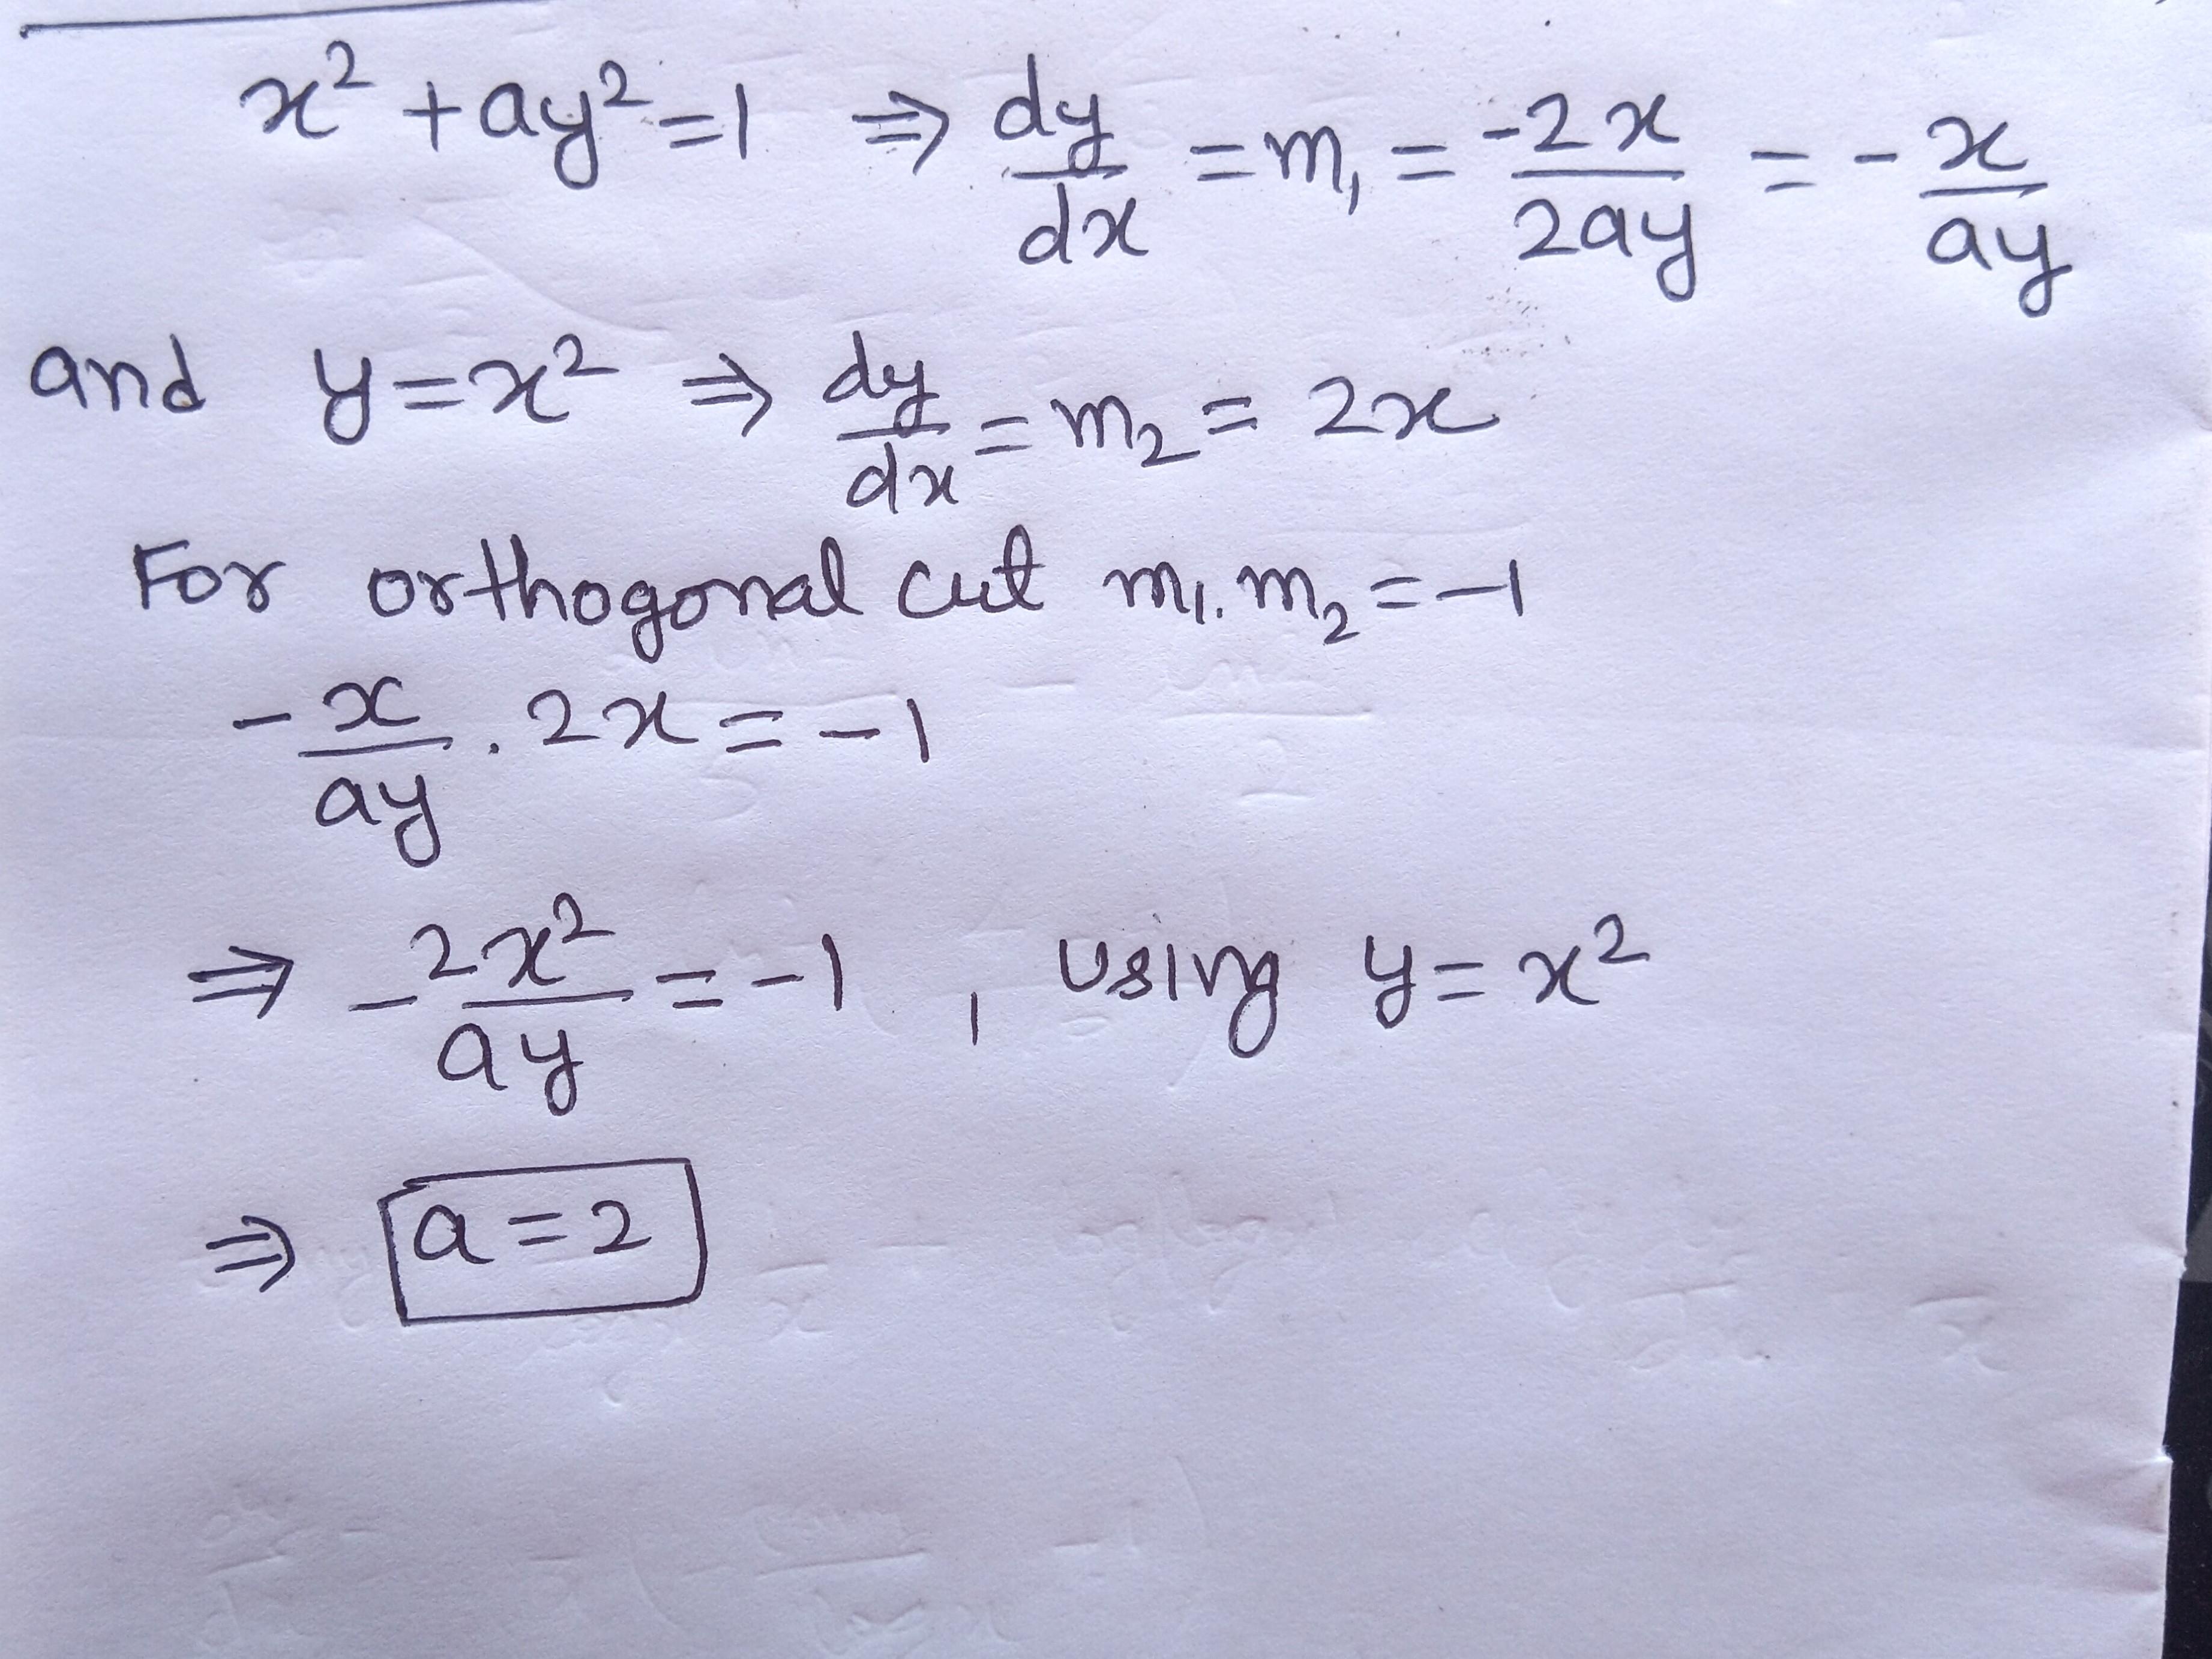 x² + ay² = 1 ⇒ dy/dx = m₁ = -2x/2ay = - x/ay
and y = x² ⇒ dy/dx = m₂ = 2x
For orthogonal cut m₁. m₂ = -1
- x/ay . 2x = -1
⇒ - 2x²/ay = -1 , using y = x²
⇒ a = 2